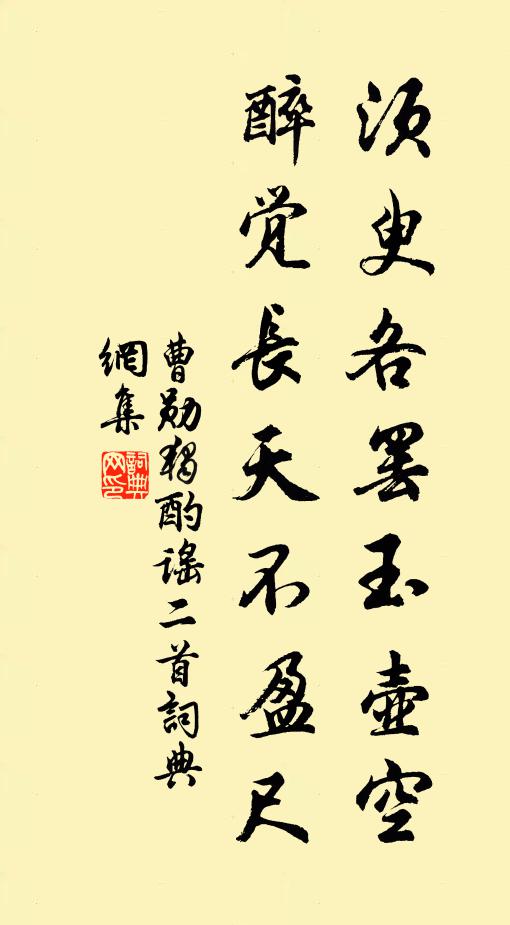 須臾各罢玉壺空
醉觉長天不盈尺
曹勋獨酌謠二首詞典
網集
詞典网印